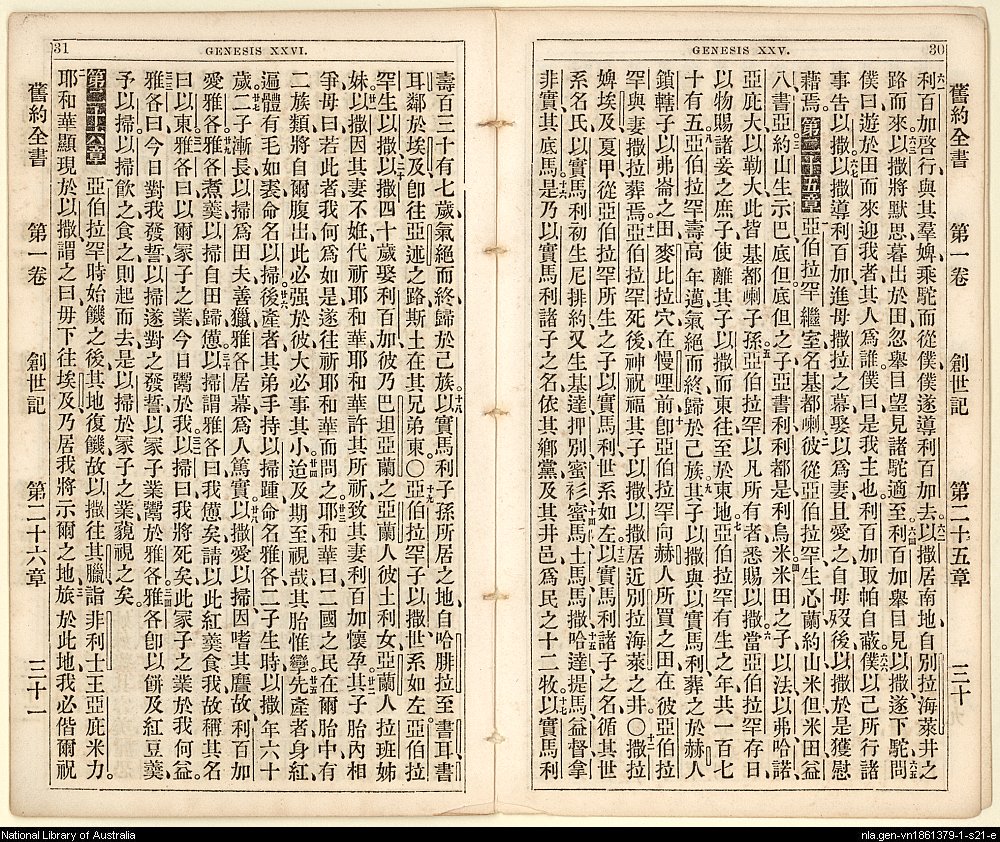 GENESIS XXV. 30
舊約全書 第一卷 創世記 第二十五章 三十
利百加啓行與其羣婢乘駝而從僕僕遂導利百加去以撒居南地自別拉海萊井之
路而來以撒將默思暮出於田忽舉目望見諸駝適至利百加舉目見以撒遂下駝問
僕曰遊於田而來迎我者其人爲誰僕曰是我主也利百加取帕自蔽僕以己所行諸
事告以撒以撒導利百加進母撒拉之幕娶以爲妻且愛之自母歿後以撒於是獲慰
藉焉 第二十五章 亞伯拉罕繼室名基都喇彼從亞伯拉罕生心蘭約山米但米田益
八書亞約山生示巴底但底但之子亞書利利都是利烏米米田之子以法以弗哈諾
亞庇大以勒大此皆基都喇子孫亞伯拉罕以凡所有者悉賜以撒當亞伯拉罕存日
以物賜諸妾之庶子使離其子以撒而東往至於東地亞伯拉罕有生之年共一百七
十有五亞伯拉罕壽高年邁氣絕而終歸於己族其子以撒與以實馬利葬之於赫人
鎖轄子以弗崙之田麥比拉穴在慢哩前卽亞伯拉罕向赫人所買之田在彼亞伯拉
罕與妻撒拉葬焉亞伯拉罕死後神祝福其子以撒以撒居近別拉海萊之井〇撒拉
婢埃及夏甲從亞伯拉罕所生之子以實馬利世系如左以實馬利諸子之名循其世
系名氏以實馬利初生尼排約又生基達押別蜜衫蜜馬土馬馬撒哈達提馬益督拿
非實其底馬是乃以實馬利諸子之名依其鄉黨及其井邑爲民之十二牧以實馬利
31 GENESIS XXVI.
壽百三十有七歲氣絕而終歸於己族以實馬利子孫所居之地自哈腓拉至書耳書
耳鄰於埃及卽往亞述之路斯土在其兄弟東〇亞伯拉罕子以撒世系如左亞伯拉
罕生以撒以撒四十歲娶利百加彼乃巴坦亞蘭之亞蘭人彼土利女亞蘭人拉班姊
妹以撒因其妻不姙代祈耶和華耶和華許其所祈致其妻利百加懷孕其子胎內相
爭母曰若此者我何爲如是遂往祈耶和華而問之耶和華曰二國之民在爾胎中有
二族類將自爾腹出此必强於彼大必事其小迨及期至視哉其胎惟孿先產者身紅
遍體有毛如裘命名以掃後產者其弟手持以掃踵命名雅各二子生時以撒年六十
歲二子漸長以掃爲田夫善獵雅各居幕爲人篤實以撒愛以掃因嗜其麕故利百加
愛雅各雅各煮羹以掃自田歸憊以掃謂雅各曰我憊矣請以此紅羹食我故稱其名
曰以東雅各曰以爾冢子之業今日鬻於我以掃曰我將死矣此冢子之業於我何益
雅各曰今日對我發誓以掃遂對之發誓以冢子業鬻於雅各雅各卽以餅及紅豆羹
予以掃以掃飲之食之則起而去是以掃於冢子之業藐視之矣
第二十六章 亞伯拉罕時始饑之後其地復饑故以撒往其臘詣非利士王亞庇米力
耶和華顯現於以撒謂之曰毋下往埃及乃居我將示爾之地旅於此地我必偕爾祝
舊約全書 第一卷 創世記 第二十六章 三十一
National Library of Australia
nla.gen-vn1861379-1-s21-e